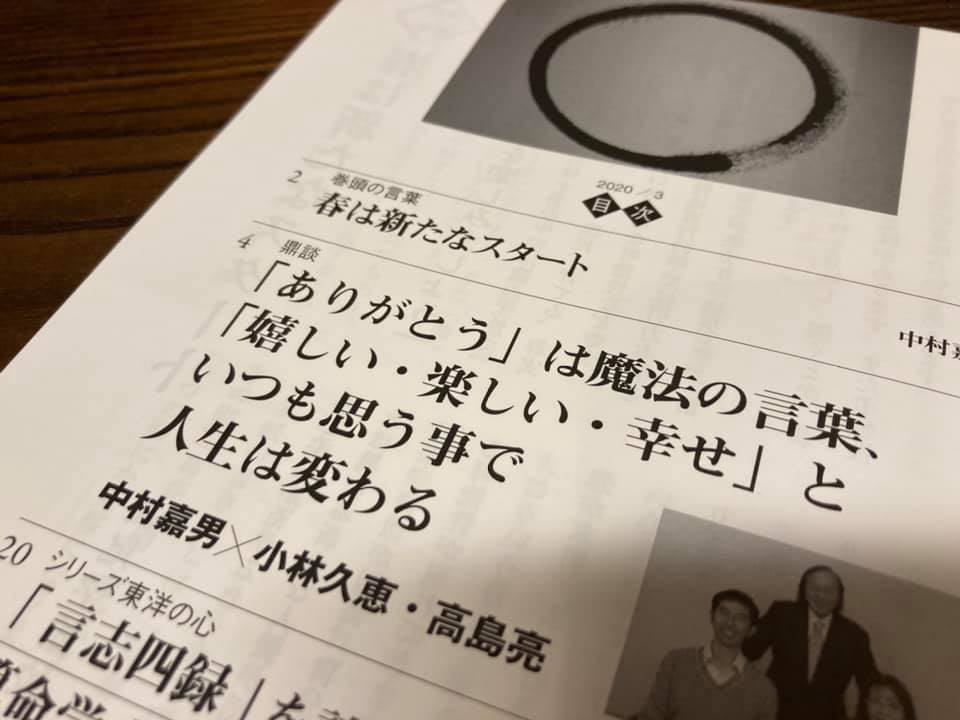 2020/3
目次
2 巻頭の言葉
春は新たなスタート
中村嘉
4 鼎談
「ありがとう」は魔法の言葉、
「嬉しい・楽しい・幸せ」と
いつも思う事で
人生は変わる
中村嘉男×小林久恵・高島亮
20 シリーズ東洋の心
「言志四録」を
命学